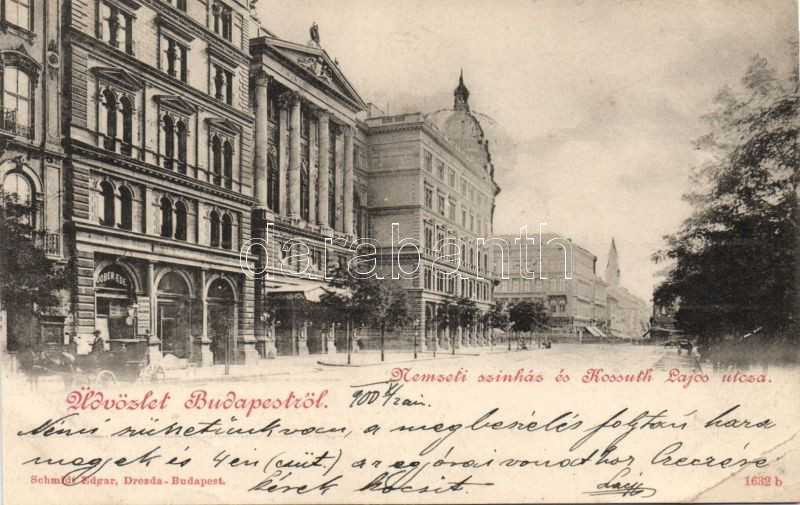 DOBER EDE
darabanth.com
Nemzeti szinház és Kossuth Lajos utcza.
Üdvözlet Budapestről.
900
Némi szünetünk van, a megbeszélés folytán haza
megyek és 4-én (csüt.) az egy órai vonathoz
kérek kocsit.
Schmidt Edgar, Drezda-Budapest.
1632 b